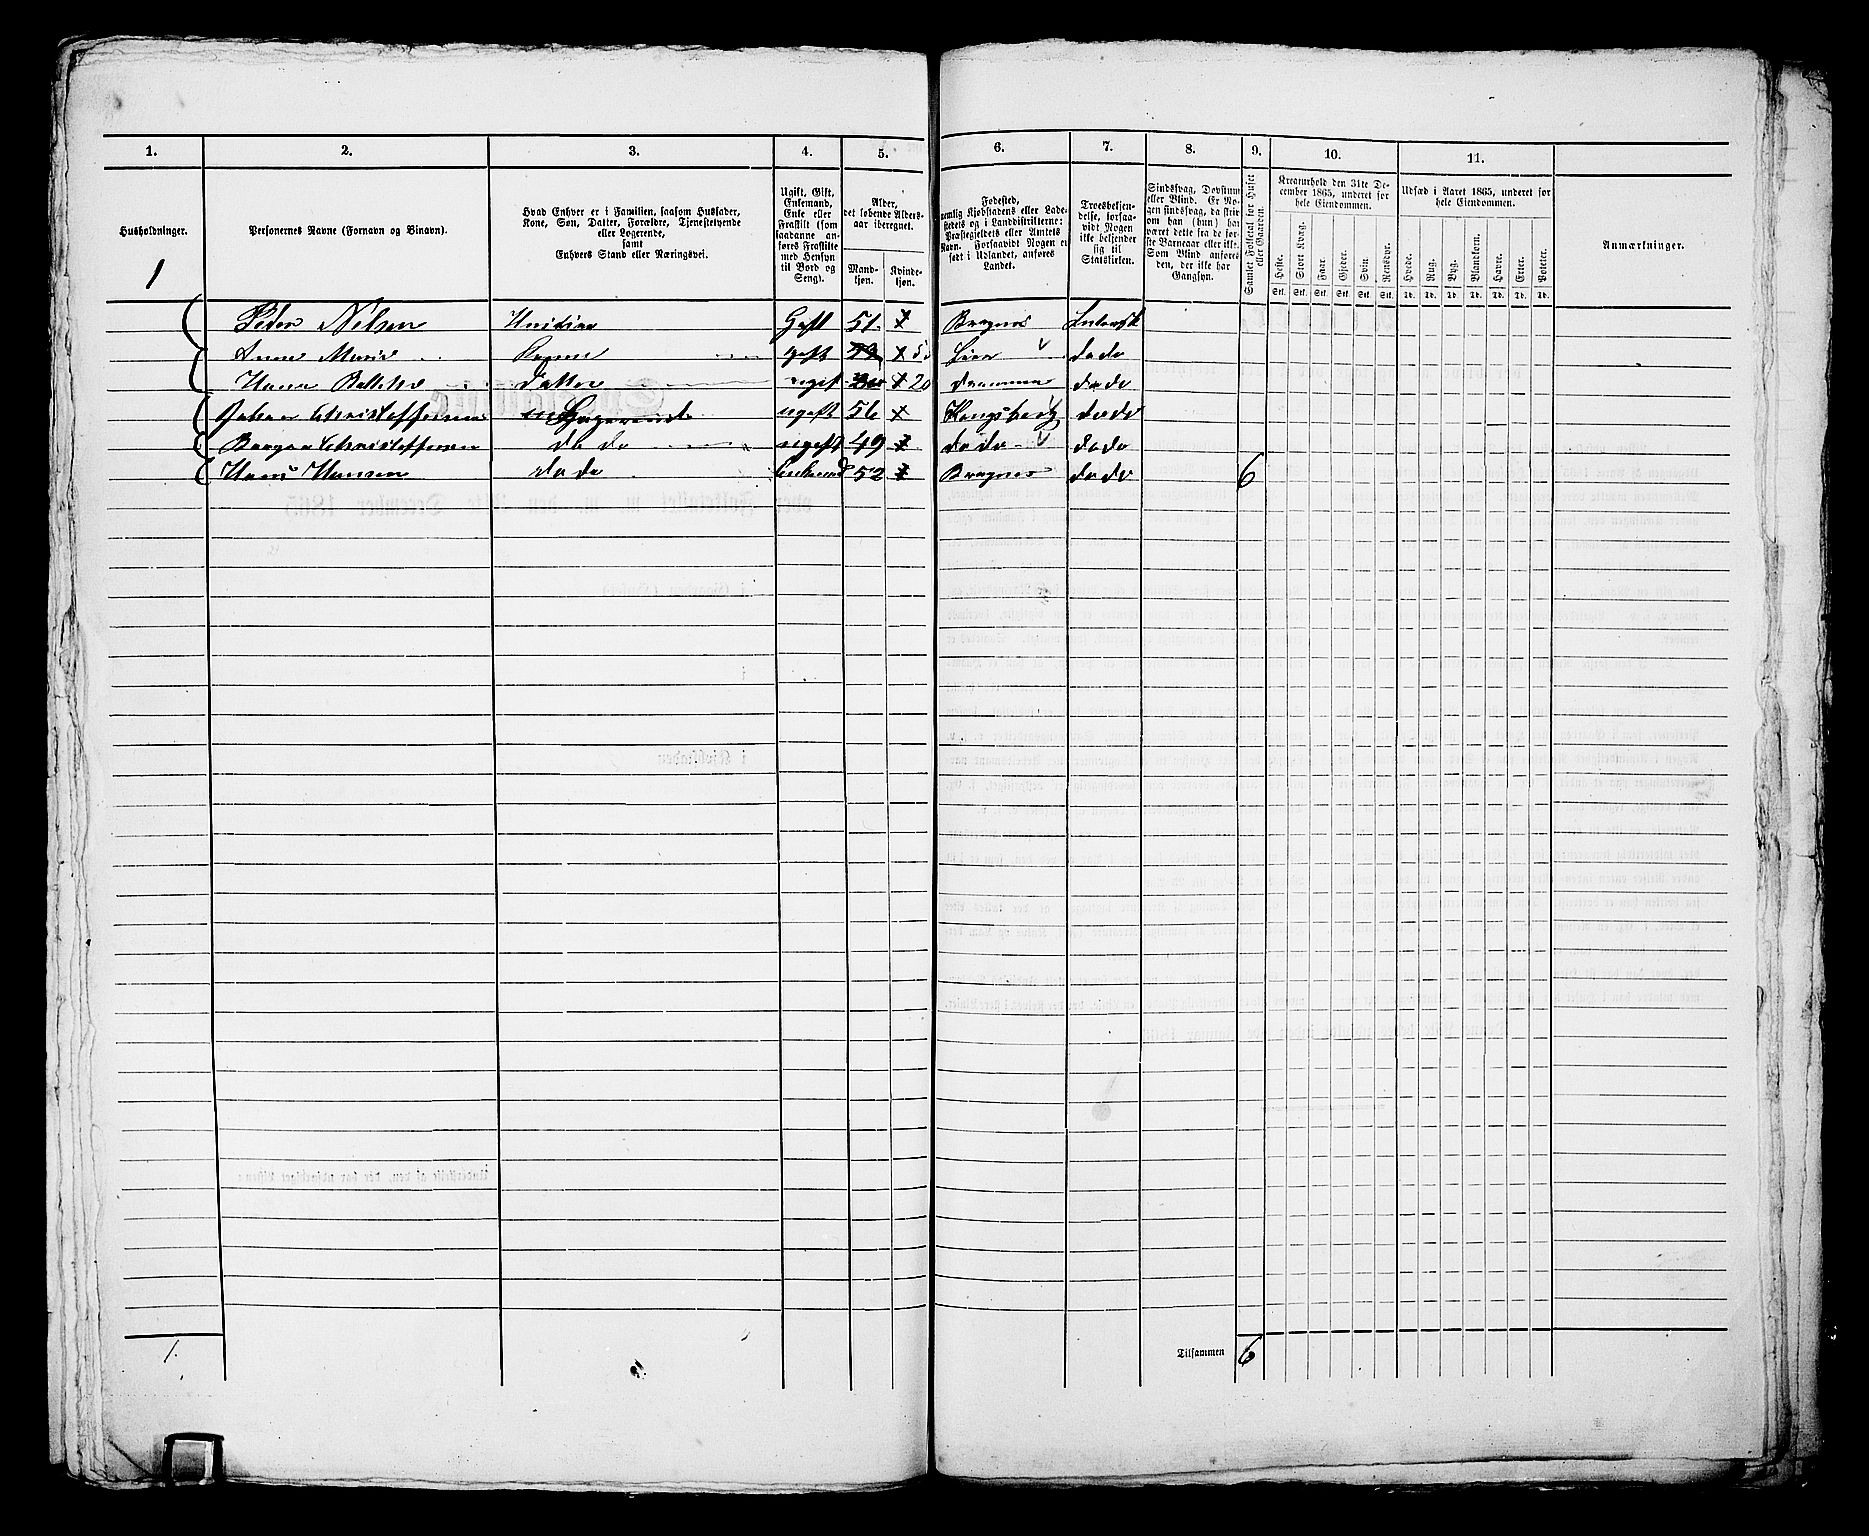 1. 2. 3. 4. 5. 6. 7. 8. 9. 10. 11.
Husholdninger.
1
Personernes Navne (Fornavn og Binavn).
Hvad Enhver er i Familien, saasom Husfader,
Kone, Søn, Datter, Forældre, Tjenestetyende
eller Logerende,
samt
Enhvers Stand eller Næringsvei.
Ugift, Gift,
Enkemand,
Enke eller
Fraskilt (som
saadanne an-
føres Fraskilte
med Hensyn
til Bord og
Seng).
Alder,
det løbende Alders-
aar iberegnet.
Mand-
kjøn.
Kvinde-
kjøn.
Fødested,
nemlig Kjøbstadens eller Lade-
stedets og i Landdistrikterne:
Præstegjeldets eller Amtets
Navn. Forsaavidt Nogen er
født i Udlandet, anføres
Landet.
Troesbekjen-
delse, forsaa-
vidt Nogen
ikke bekjender
sig til
Statskirken.
Sindssvag, Døvstum
eller Blind. Er No-
gen sindssvag, da skriv
om han (hun) har
været dette fra de før-
ste Barneaar eller ikke.
Som Blind anføres
den, der ikke har
Gangsyn.
Samlet Folketal for Huset
eller Gaarden.
Kreaturhold den 31te De-
cember 1865, underet for
hele Eiendommen.
Heste. Stort Kvæg. Faar. Gjeder. Svin. Rensdyr.
Stk. Stk. Stk. Stk. Stk. Stk.
Udsæd i Aaret 1865, underet for
hele Eiendommen.
Hvede. Rug. Byg. Blandkorn. Havre. Erter. Poteter.
Td. Td. Td. Td. Td. Td. Td.
Anmærkninger.
Peder Nilsen Gift 51 Bragnes Luthersk
Anne Marie Konne gift 50 Lier dodo
Datter ugift 20 Drammen dodo
Johan Christoffersen Logerende ugift 56 Kongsberg dodo
Christoffersen do do ugift 49 dodo dodo
Hans Hansen dodo Enkemand 52 Bragnes dodo 6
1.
Tilsammen 6